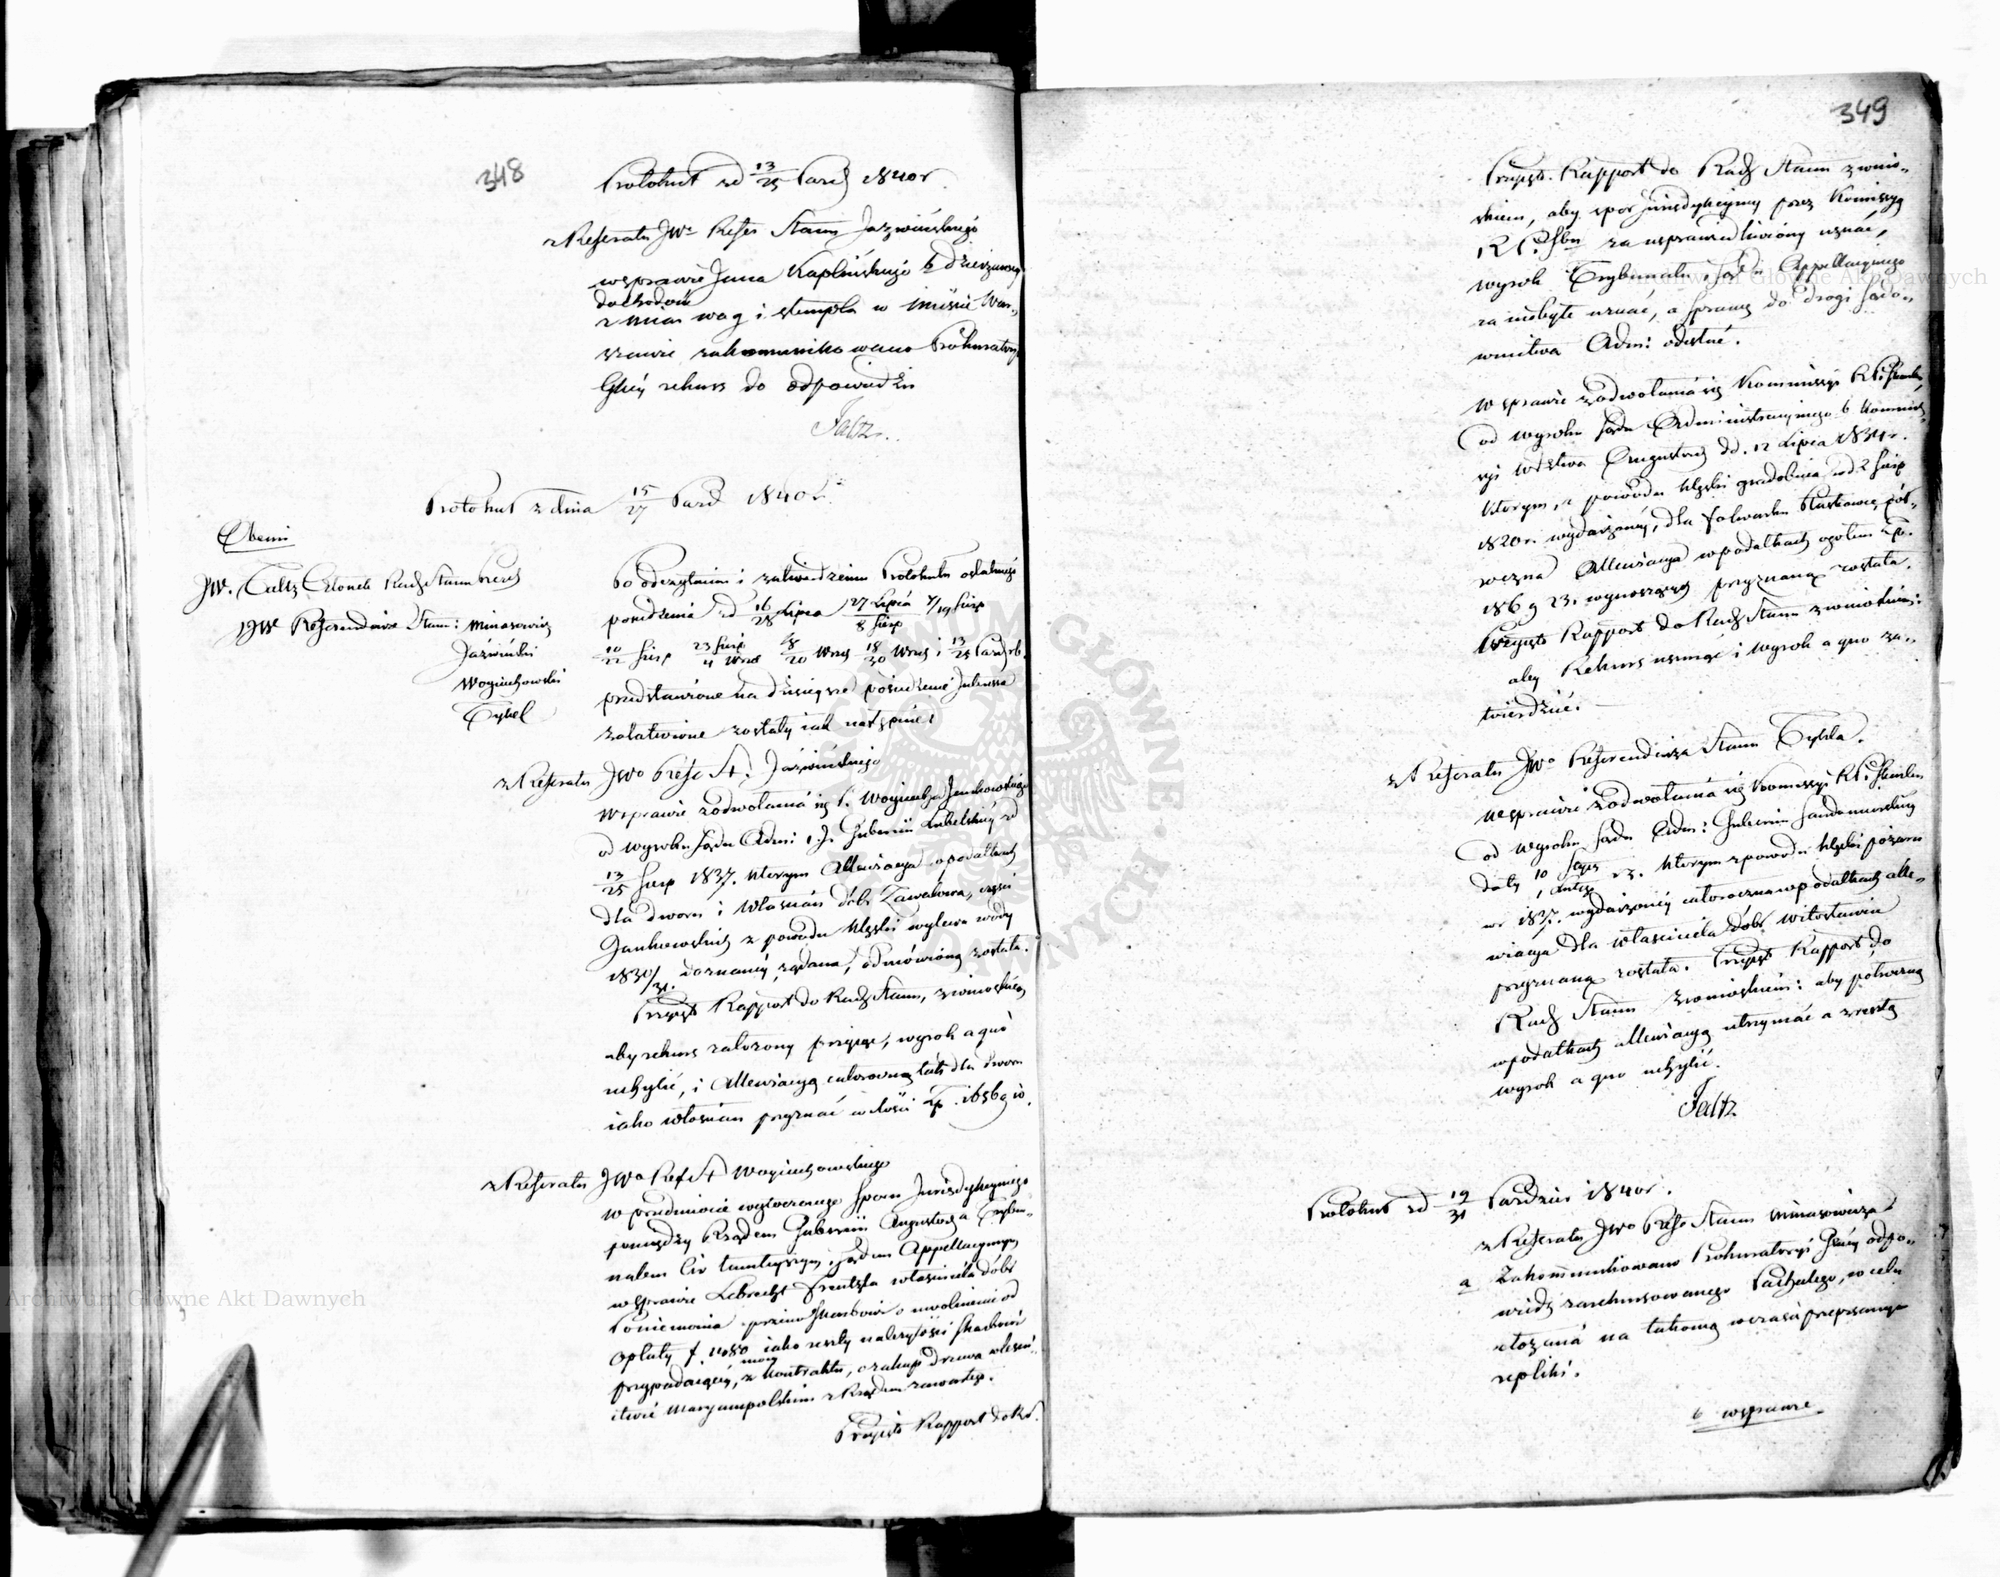 348
Protokuł zd 13/25 Pazd 1840r.
z Referatu JWo Refer Stanu Jaźwińskiego
w sprawie Jana Kaplińskiego b dzierżawcy
dochodów
z miar wag i stempla w mieście War-
szawie zakommunikowano Prokuratoryi
Glnéy rekurs do odpowiedzi
Protokuł z dnia 15/27 Pazd 1840 r.
Obecni
JW. Członek Rady Stanu Prezd
JJWW Referendarze Stanu: Minasowicz
Jaźwiński
Woyciechowski
Tykel
Po odczytaniu i zatwierdzeniu Protokułu ostatniego
posiedzenia zd 16/28 Lipca 27 Lipca/8 Sierp 7/19 Sierp
10/22 Sierp 23 Sierp/4 Wrześ 8/20 Wrześ 18/30 Wrześ i 13/25 Pazd rb.
przedstawione na dzisieysze posiedzenie Interessa
załatwione zostały iak następuie:
z Referatu JWo Refe St. Jaźwińskiego
W sprawie z odwołania się P. Woyciecha Jankowskiego
od wyroku Sądu Adm: I J. Gubernii Lubelskiéy zd
13/25 Sierp 1837. którym Allewiacya w podatkach
dla dworu i włościan dóbr Zawałowa, części
Jankowskich z powodu klęski wylewu wody
1830/31. doznanéy, żądana, odmówioną została.
Przyięto Rapport do Rady Stanu, z wnioskiem
aby rekurs założony przyiąć, wyrok a quo
uchylić, i Allewiacyą całoroczną tak dla dworu
iako włościan przyznać w ilości Zp. 1656 g 10.
z Referatu JWo Ref St Woyciechowskiego
w przedmiocie wytoczonego Sporu Jurisdykcyinego
pomiędzy Rządem Gubernii Augustow. a Trybu-
nałem Civ tamteyszym i Sądem Appellacyinym
w sprawie Lebrecht Frentzla właściciela dóbr
Poniemonia przeciw Skarbowi o uwolnienie od
opłaty f. iako reszty należytości Skarbowi
przypadaiącéy, z mocy kontraktu, o zakup drzewa w leśni-
ctwie Maryampolskim z Rządem zawartego.
Przyięto Rapport do Rd.
349
Przyięto Rapport do Rady Stanu z wnio-
skiem, aby spór jurisdykcyiny przez Kommissyą
R. P. i Sbu za usprawiedliwiony uznać,
wyrok Trybunału i Sądu Appellacyinego
za niebyłe uznać, a sprawę do drogi Sądo-
wnictwa Adm: odesłać.
W sprawie z odwołania się Kommissyi R. P. i Skarbu
od wyroku Sądu Administracyinego b Kommis-
syi Wdztwa Augustow. dd. 12 Lipca 1834 r.
którym, z powodu klęski gradobicia zd 2 Sierp
1820 r. wydarzonéy, dla folwarku pół-
roczna Allewiacya w podatkach ogółem Zp.
186 g 23. wynosząca przyznaną została.
Przyięto Rapport do Rady Stanu z wnioskiem:
aby Rekurs usunąć i wyrok a quo za-
twierdzić.
z Referatu JWo Referendarza Stanu Tykla.
W sprawie z odwołania się Kommissyi R. P. i Skarbu
od wyroku Sądu Adm: Gubernii Sandomierskiéy
daty 10 którym z powodu klęski pożaru
w r 1837. wydarzonéy całoroczna w podatkach alle-
wiacya dla właściciela dóbr Witosławia
przyznaną została. Przyięto Rapport do
Rady Stanu z wnioskiem: aby półroczną
w podatkach allewiacyą utrzymać a zresztą
wyrok a quo uchylić.
Protokuł zd 19/31 Pazdzier 1840 r.
z Referatu JWo Refe Stanu Minasowicza
a Zakommunikowano Prokuratoryi Glnéy odpo-
wiedź zarekursowanego Pachulego, w celu
złożenia na takową w czasie przepisanym
repliki.
b w sprawie
Archiwum Główne Akt Dawnych
Archiwum Główne Akt Dawnych